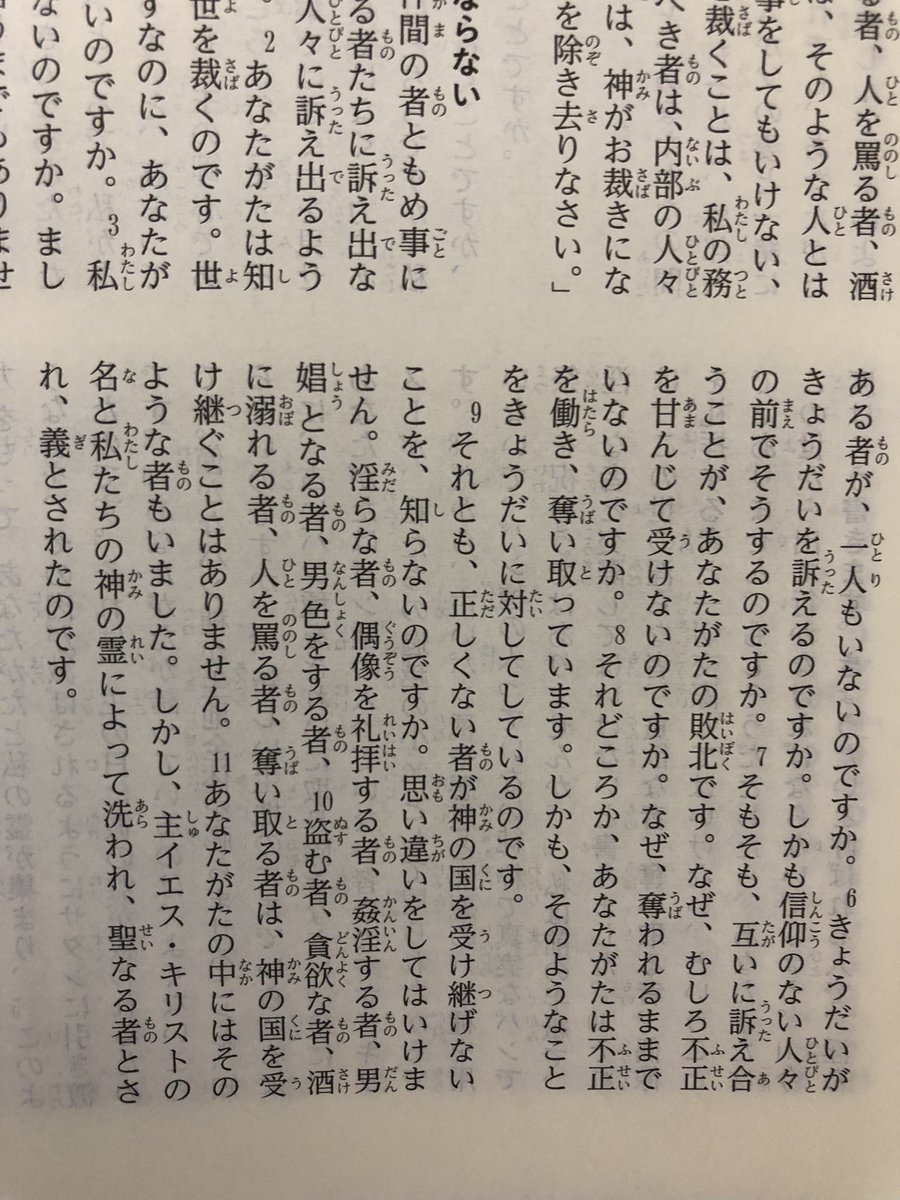 る者、人を罵る者、酒
、そのような人とは
事をしてもいけない、
裁くことは、私の務
き者は、内部の人々
は、神がお裁きにな
を除き去りなさい。」
ならない
間の者ともめ事に
る者たちに訴え出な
人々に訴え出るよう
。2あなたがたは知
世を裁くのです。世
なのに、あなたが
いのですか。3私
ないのですか。まし
でもありませ
ある者が、一人もいないのですか。6きょうだいが
きょうだいを訴えるのですか。しかも信仰のない人々
の前でそうするのですか。7そもそも、互いに訴え合
うことが、あなたがたの敗北です。なぜ、むしろ不正
を甘んじて受けないのですか。なぜ、奪われるままで
いないのですか。8それどころか、あなたがたは不正
を働き、奪い取っています。しかも、そのようなこと
をきょうだいに対してしているのです。
9それとも、正しくない者が神の国を受け継げない
ことを、知らないのですか。思い違いをしてはいけま
せん。淫らな者、偶像を礼拝する者、姦淫する者、男
娼となる者、男色をする者、10盗む者、貪欲な者、酒
に溺れる者、人を罵る者、奪い取る者は、神の国を受
け継ぐことはありません。11あなたがたの中にはその
ような者もいました。しかし、主イエス・キリストの
名と私たちの神の霊によって洗われ、聖なる者とさ
れ、義とされたのです。